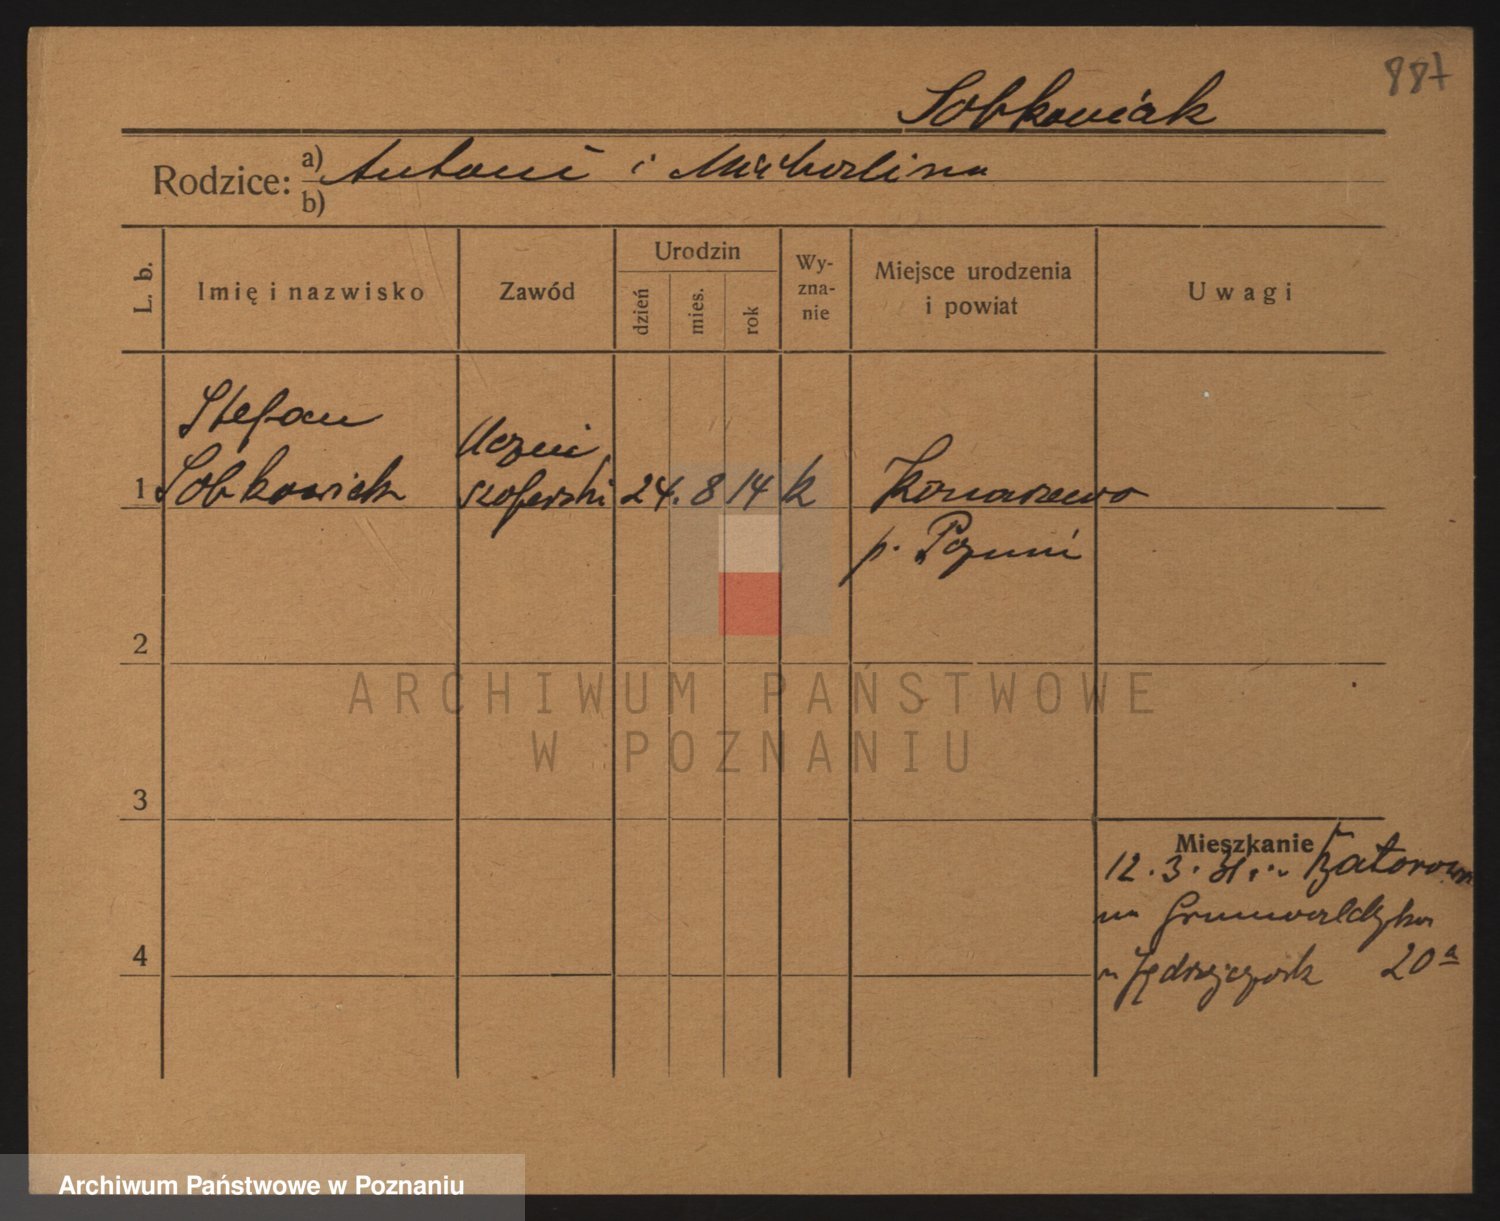 887
Sobkowiak
Rodzice: a) Antoni i Michalina
b)
L. b.
Imię i nazwisko
Zawód
Urodzin
dzień
mies.
rok
Wy-
zna-
nie
Miejsce urodzenia
i powiat
Uwagi
Stefan
Uczeń
1 Sobkowiak szoferski 24. 8 14 k Konarzewo
p. Poznań
2
ARCHIWUM PAŃSTWOWE
W POZNANIU
3
Mieszkanie
12. 3. 31.
na Grunwaldzka
4
u Jędrzejczak 20a
Archiwum Państwowe w Poznaniu